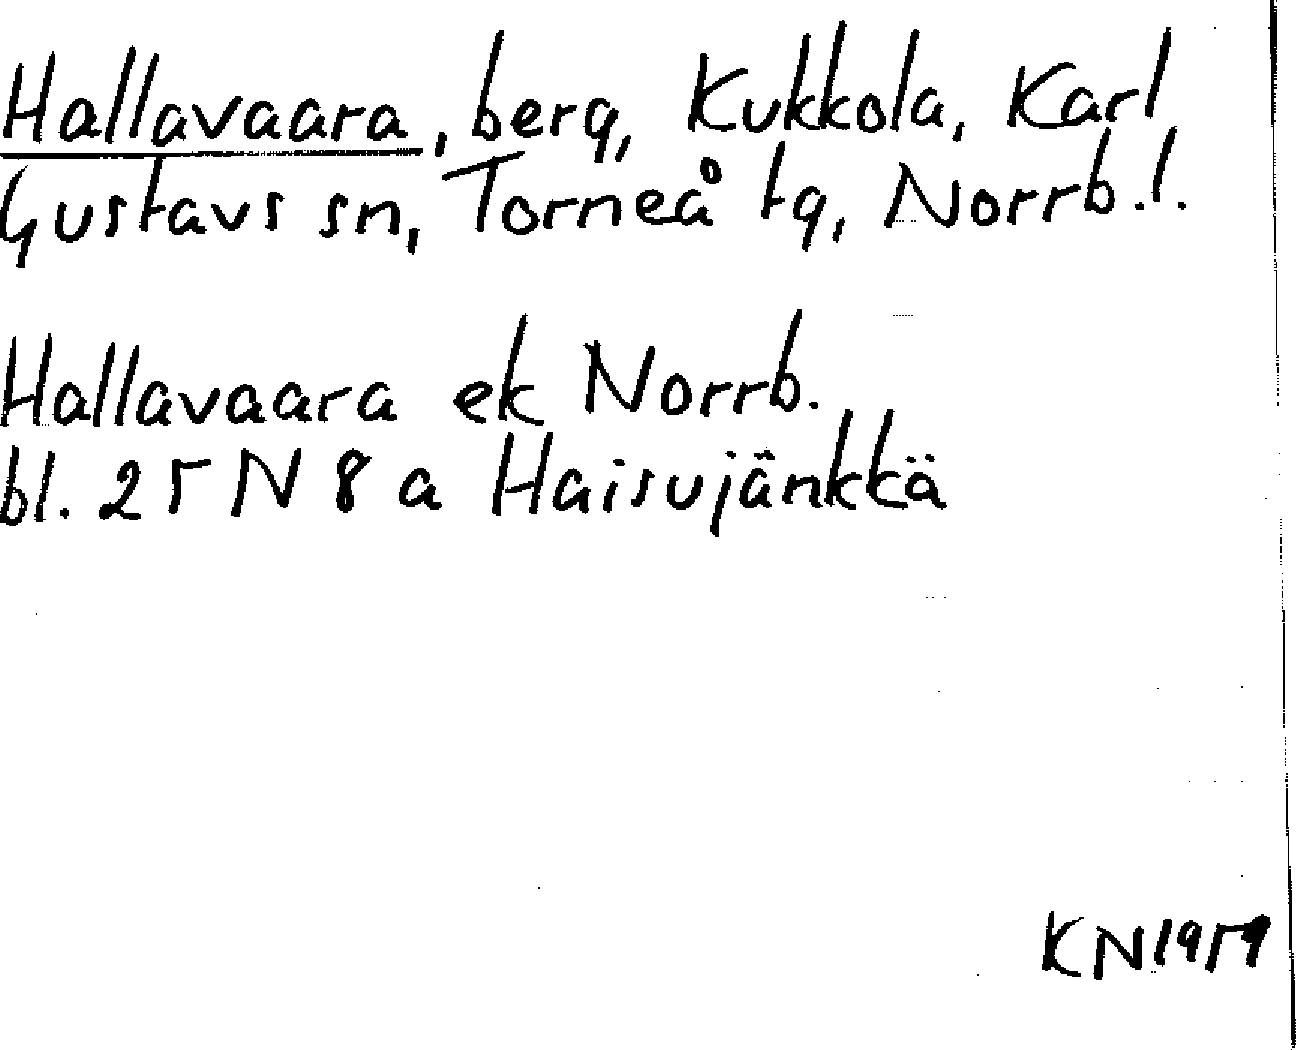 Hallavaara, berg, Kukkola, Karl
Gustavs sn, Torneå tg, Norrb.l.
Hallavaara ek Norrb.
bl. 25 N 8 a Haisujänkkä
KN 1959